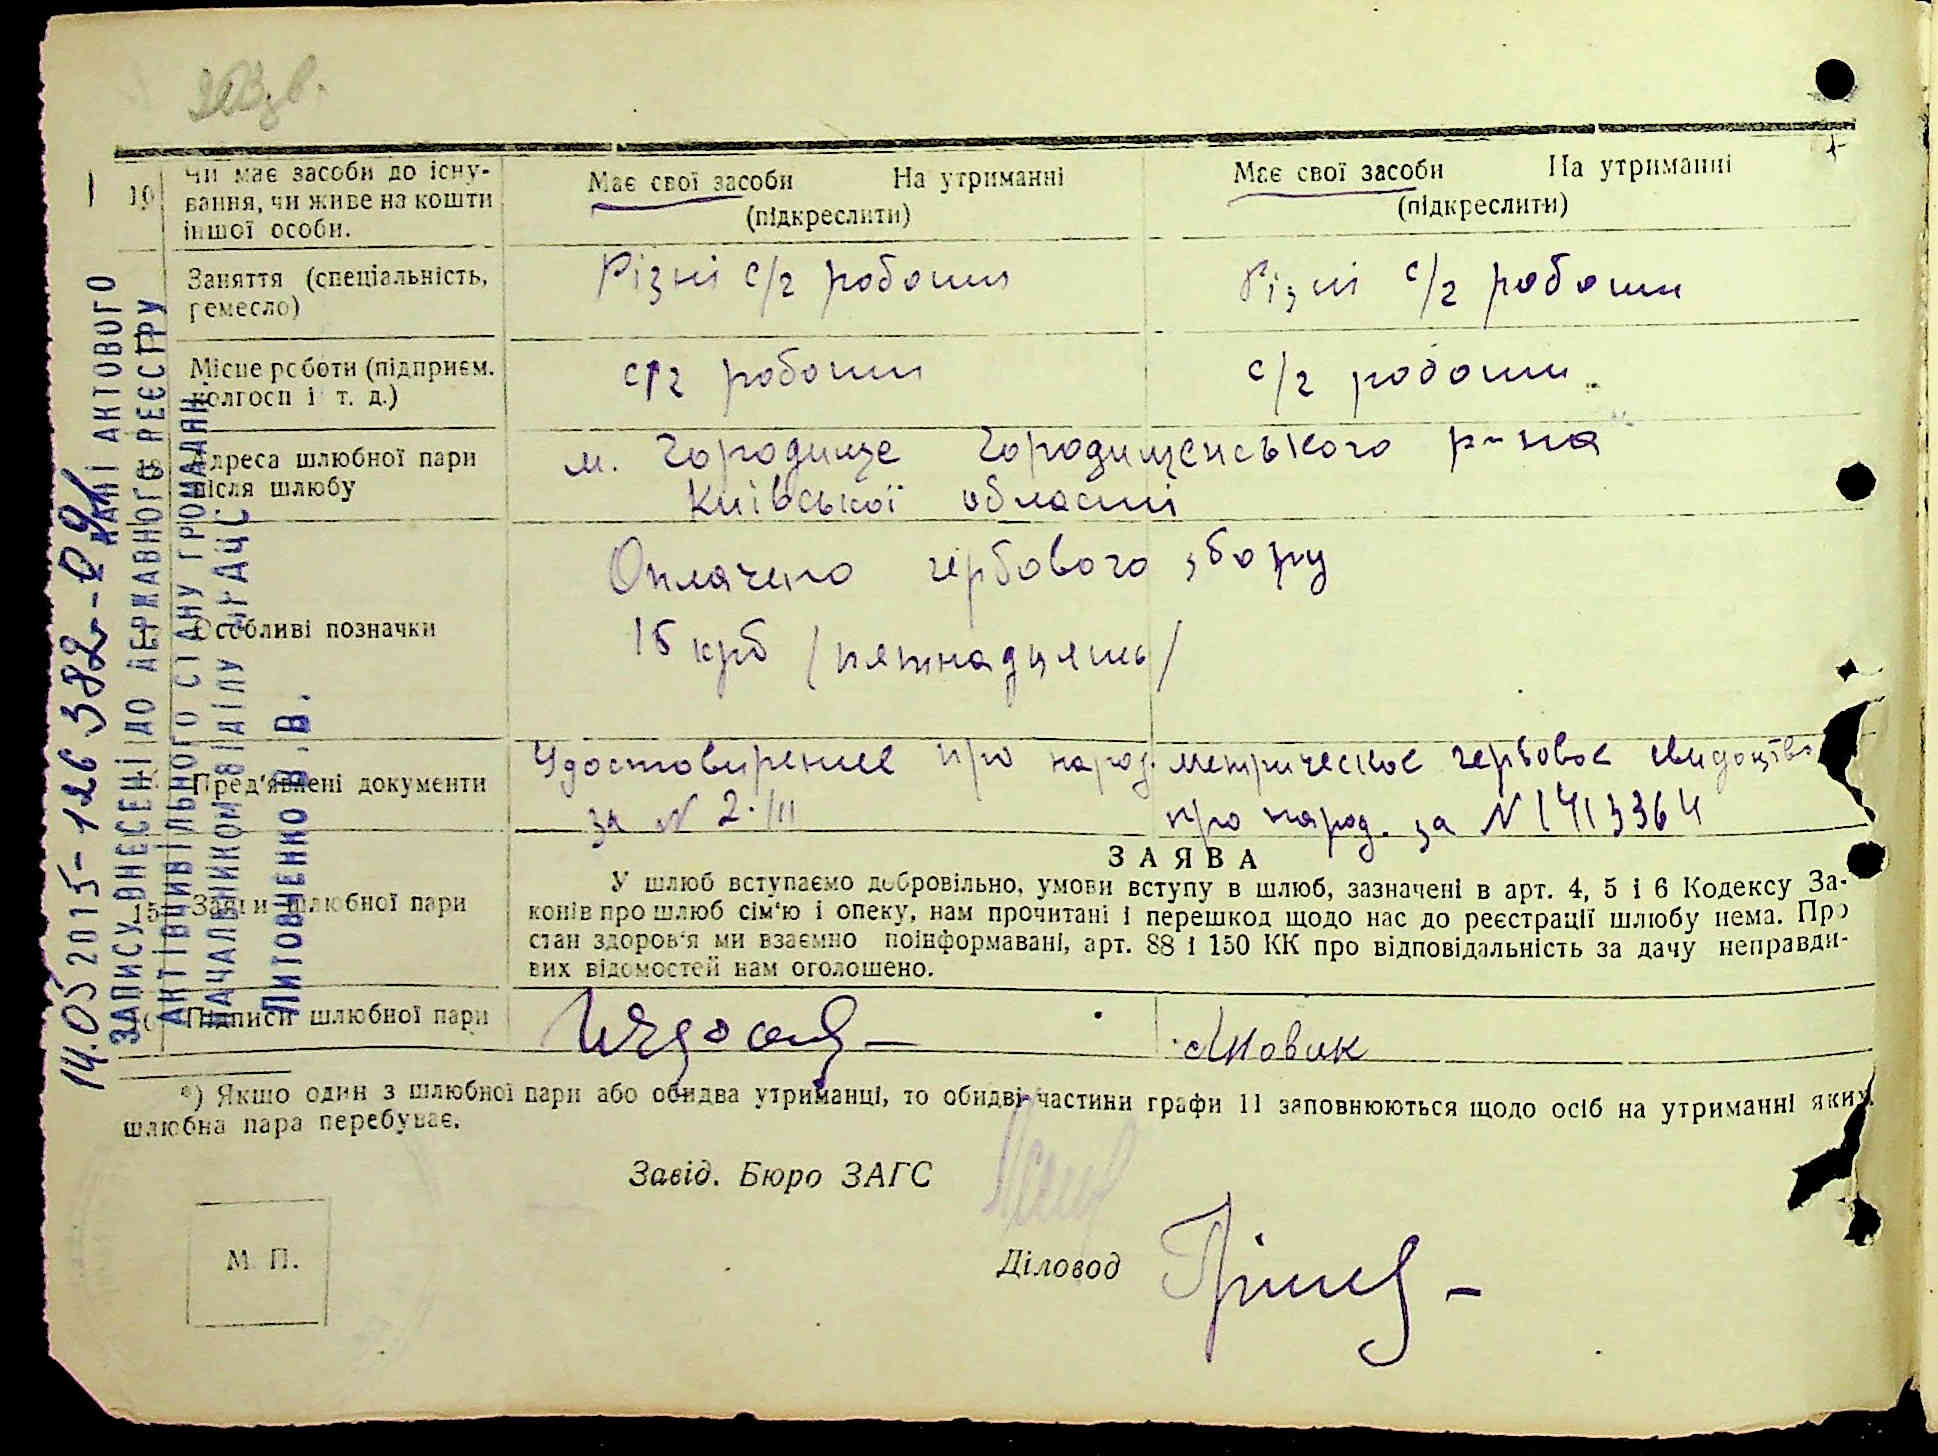 10 Чи має засоби до існу-
вання, чи живе на кошти
іншої особи.
Має свої засоби На утриманні
(підкреслити)
Має свої засоби На утриманні
(підкреслити)
Заняття (спеціальність,
ремесло)
Різні с/г роботи
Різні с/г роботи
Місце роботи (підприєм.
колгосп і т. д.)
с/г роботи
с/г роботи
Адреса шлюбної пари
після шлюбу
м. Городище Городищенського р-на
Київської області
Особливі позначки
Оплачено гербового збору
15 крб /пятнадцять/
Пред'явлені документи
Удостовирение про народ.
за № 2.
метрическое гербовое свидоцтво
про народ. за № 1713364
ЗАЯВА
15 Заяви шлюбної пари
У шлюб вступаємо добровільно, умови вступу в шлюб, зазначені в арт. 4, 5 і 6 Кодексу За-
конів про шлюб сім'ю і опеку, нам прочитані і перешкод щодо нас до реєстрації шлюбу нема. Про
стан здоров'я ми взаємно поінформавані, арт. 88 і 150 КК про відповідальність за дачу неправди-
вих відомостей нам оголошено.
Підписи шлюбної пари
*) Якщо один з шлюбної пари або обидва утриманці, то обидві частини графи 11 заповнюються щодо осіб на утриманні яких
шлюбна пара перебуває.
Завід. Бюро ЗАГС
Діловод
М. П.
14.05 2015-126 382-09
ДАНІ АКТОВОГО
ЗАПИСУ ВНЕСЕНІ ДО ДЕРЖАВНОГО РЕЄСТРУ
АКТІВ ЦИВІЛЬНОГО СТАНУ ГРОМАДЯН
НАЧАЛЬНИКОМ ВІДДІЛУ ДРАЦС
Литовченко В.В.